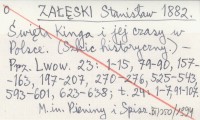 0 ZAŁĘSKI Stanisław 1882.
Święta Kinga i jej czasy w
Polsce. (Szkic historyczny.) -
Prz. Lwow. 23: 1-15, 79-90, 157-
-163, 197-207, 270-276, 525-543,
593-601, 623-638; t. 24: 1-7, 91-107.
M. in. Pieniny i Spisz.